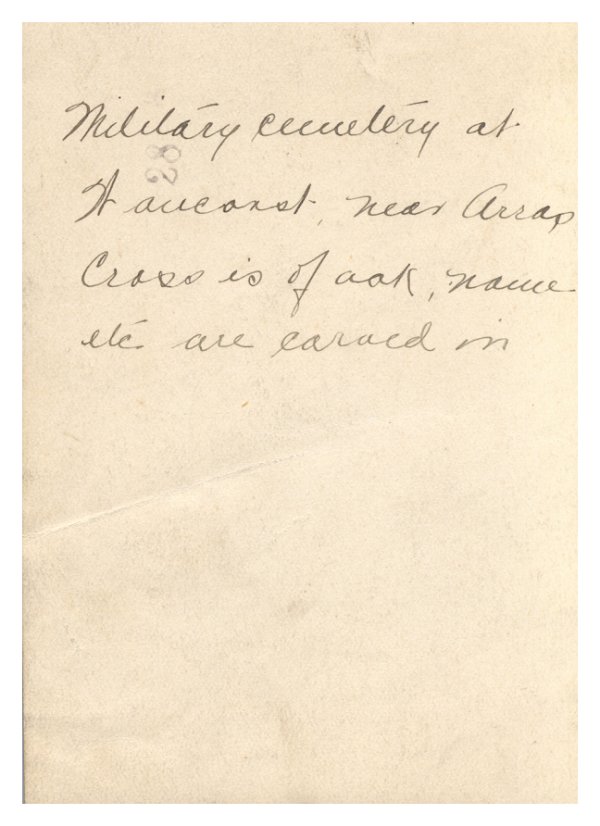 Military cemetery at
28
Hauconst, near Arras
Cross is of oak, name
etc are carved in